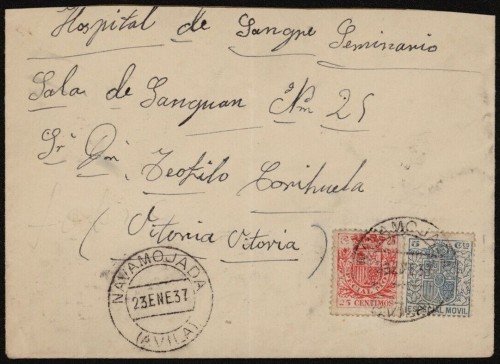 Hospital de Sangre Seminario
Sala de Sanguan Nm 25
Sr Dn Teofilo Corihuela
(Vitoria Vitoria)
NAVAMOJADA
23 ENE 37
(AVILA)
ESPECIAL MOVIL
25 CENTIMOS
5 CTS
ESPECIAL MOVIL